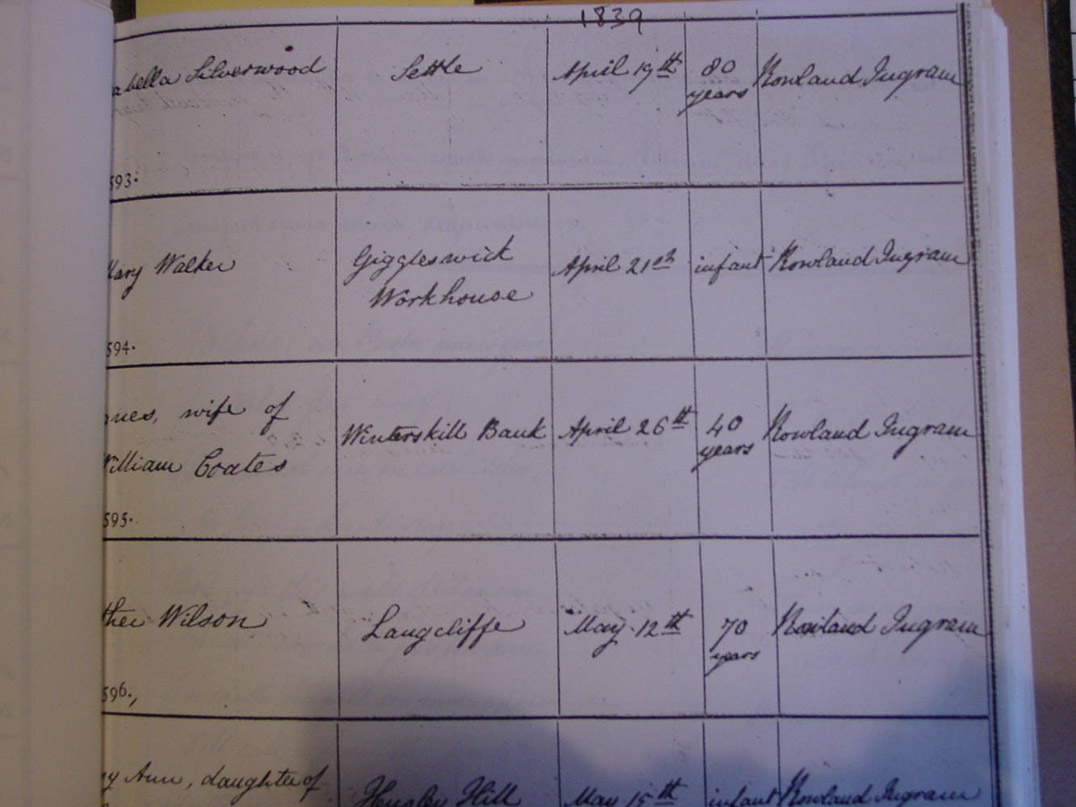 1839
abella Silverwood Settle April 19th 80 years Rowland Ingram
593.
Mary Walker Giggleswick Workhouse April 21st infant Rowland Ingram
594.
wife of
William Coates Winterskill Bank April 26th 40 years Rowland Ingram
595.
ther Wilson Langcliffe May 12th 70 years Rowland Ingram
596.,
y Ann, daughter of Hill May 15th infant Rowland Ingram